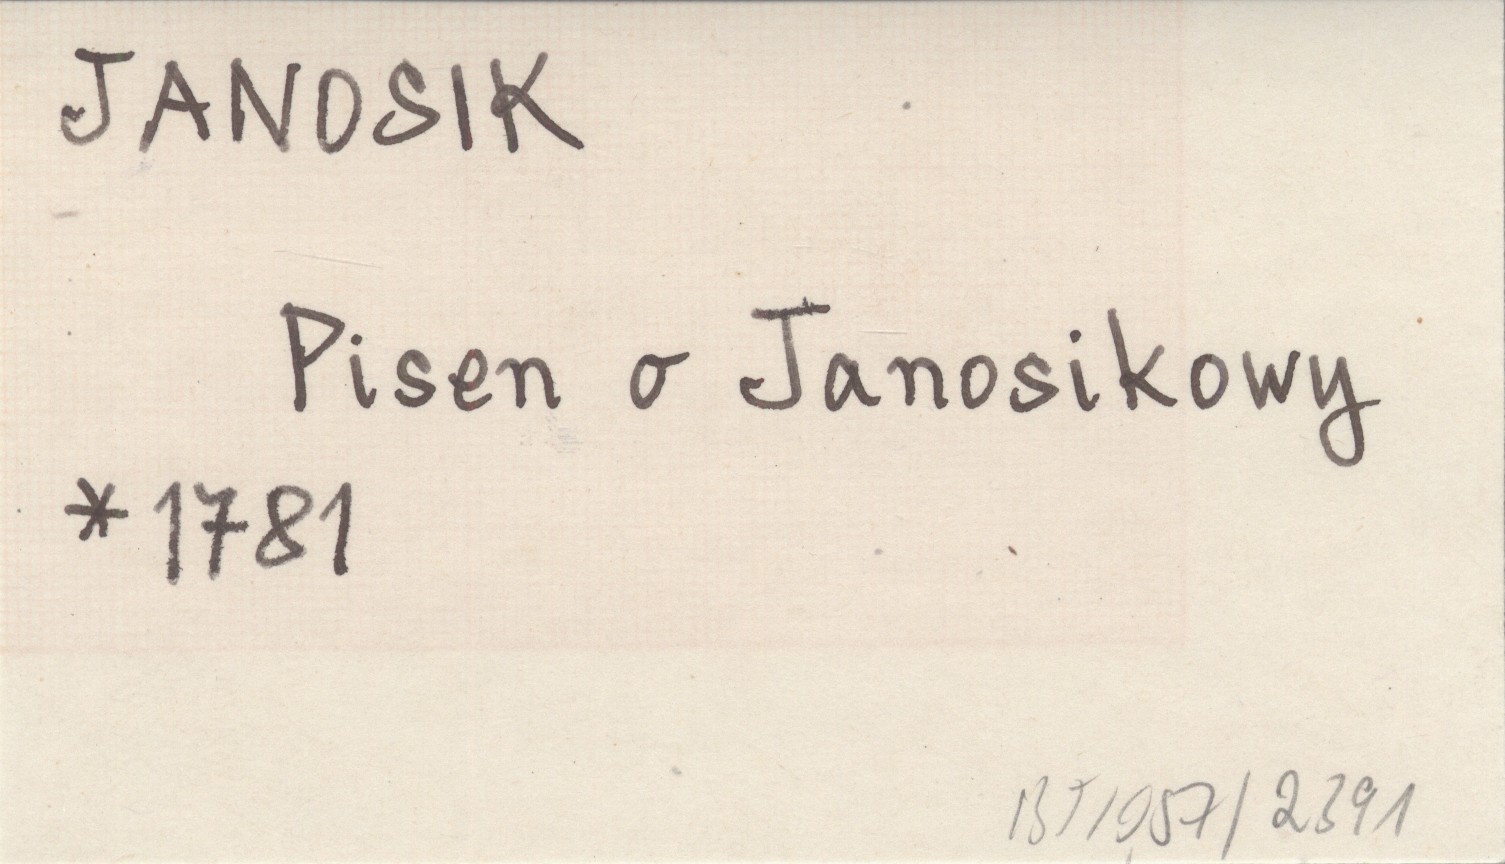 JANOSIK
Pisen o Janosikowy
*1781
2391